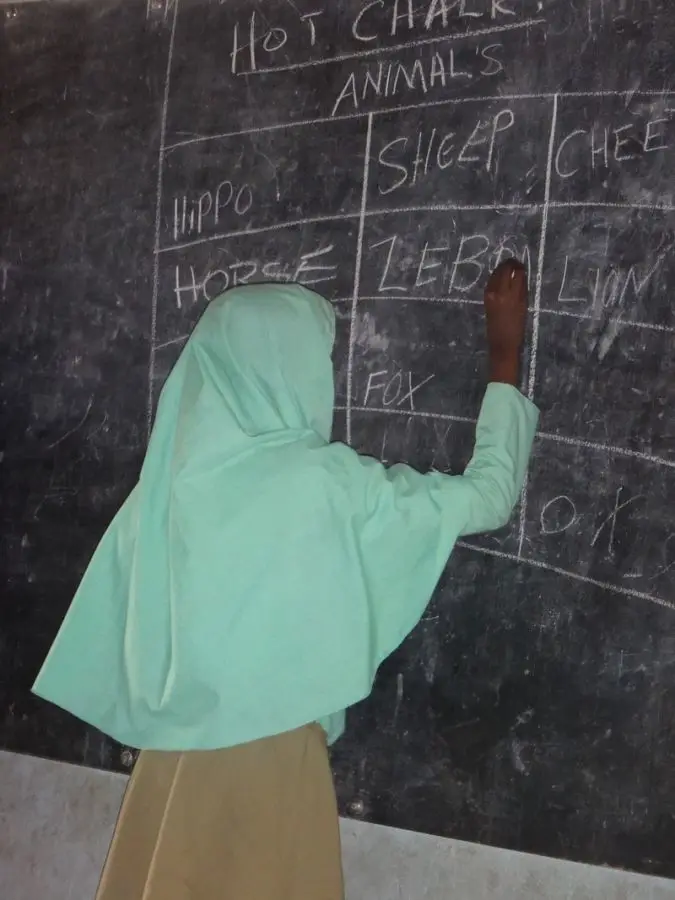 HOT CHALK.
ANIMAL'S
HIPPO SHEEP CHEE
HORSE ZEB LION
FOX
OX